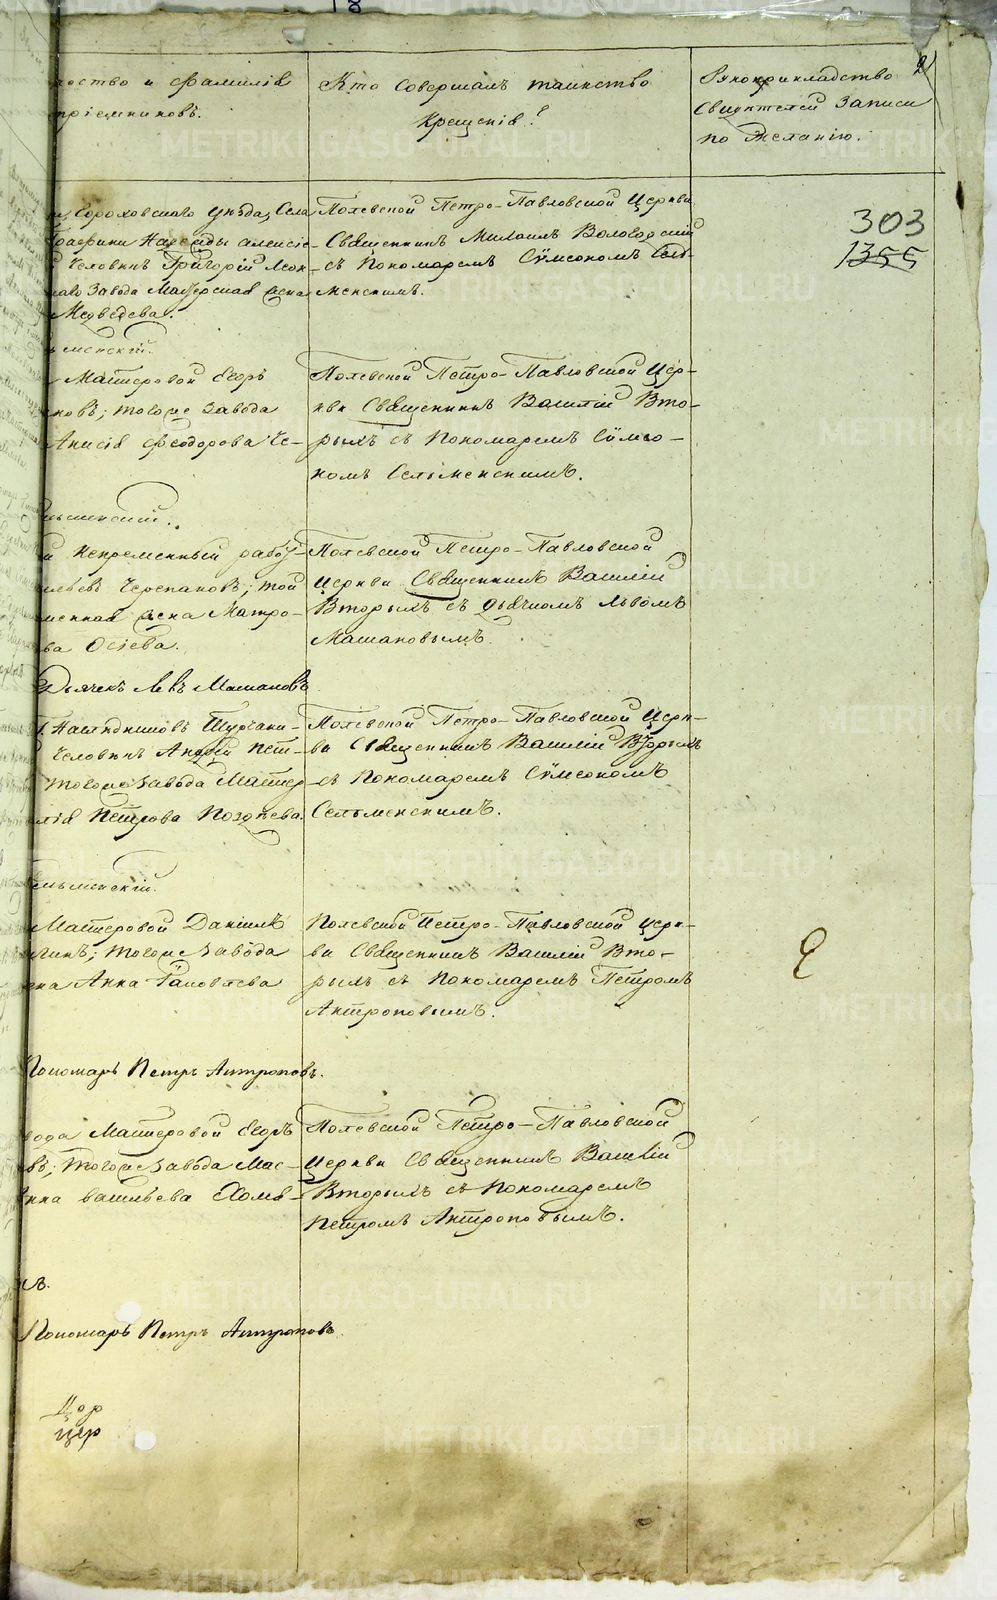 21
чество и фамилія
пріемниковъ.
Кто совершалъ таинство
крещенія?
Рукоприкладство
свидѣтелей записи
по желанію.
303
1355
Гороховскаго уѣзда, Села
Графини Надежды Алексіе-
Человѣкъ Григорій Леон-
скаго завода Мастерская жена
Медвѣдева.
Полевской Петро-Павловской Церкви
Священникъ Михаилъ Вологодскій
съ Пономаремъ Сѵмеономъ Сель-
менскимъ.
ьменскій.
Мастеровой Егоръ
ковъ; тогоже завода
Анисія Феодорова Че-
Полевской Петро-Павловской Цер-
кви Священникъ Василій Вто-
рыхъ съ Пономаремъ Сѵмео-
номъ Сельменскимъ.
льменскій.
й непременный рабо-
ильевъ Черепановъ; той
менная жена Матро-
ва Осіева.
Полевской Петро-Павловской
Церкви Священникъ Василій
Вторыхъ съ Дьячкомъ Львомъ
Машановымъ.
Дьячекъ Левъ Машановъ
Наслѣдниковъ Турчани-
Человѣкъ Андрей Пет-
тогоже завода Мастер-
лія Петрова Поздѣева.
Полевской Петро-Павловской Церк-
ви Священникъ Василій Вторыхъ
съ Пономаремъ Сѵмеономъ
Сельменскимъ.
ельменскій.
Мастеровой Даніилъ
гинъ; тогоже завода
ена Анна
Полевской Петро-Павловской Церк-
ви Священникъ Василій Вто-
рыхъ съ Пономаремъ Петромъ
Антроповымъ.
Пономарь Петръ Антроповъ.
вода Мастеровой Егоръ
въ; тогоже завода Мас-
нна Васильева Хомя-
Полевской Петро-Павловской
Церкви Священникъ Василій
Вторыхъ съ Пономаремъ
Петромъ Антроповымъ.
хъ.
Пономарь Петръ Антроповъ
цер
METRIKI.GASO-URAL.RU